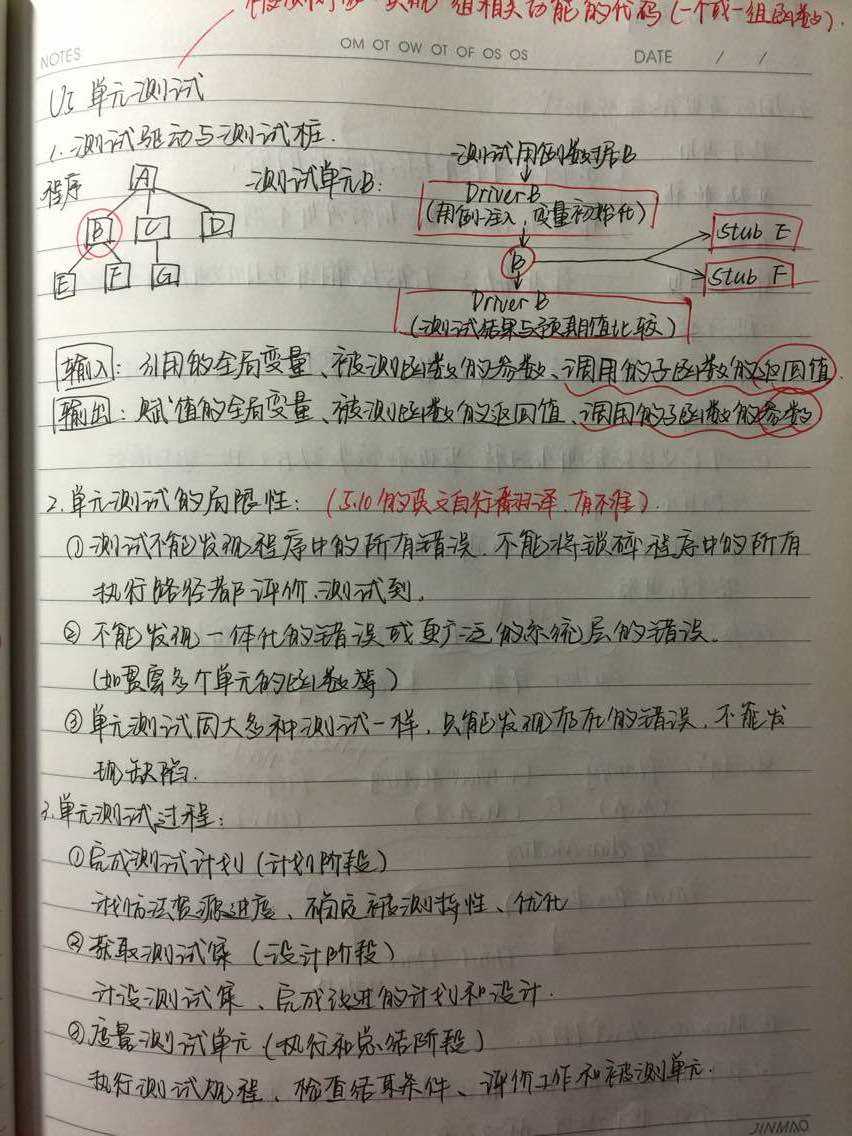 实现一组相关功能的代码(一个或一组函数).
NOTES
OM OT OW OT OF OS OS
DATE / /
U5 单元测试
1. 测试驱动与测试桩.
程序
A
B C D
E F G
测试单元B:
测试用例数据B
Driver B
(用例注入,变量初始化)
B
Stub E
Stub F
Driver B
(测试结果与预期值比较)
输入: 引用的全局变量、被测函数的参数、调用的子函数的返回值.
输出: 赋值的全局变量、被测函数的返回值、调用的子函数的参数
2. 单元测试的局限性: (5.10的英文自行翻译,有不准).
① 测试不能发现程序中的所有错误. 不能将琐碎程序中的所有
执行路径都评价、测试到.
② 不能发现一体化的错误或更广泛的系统层的错误.
(如贯穿多个单元的函数等)
③ 单元测试同大多种测试一样, 只能发现存在的错误, 不能发
现缺陷.
3. 单元测试过程:
① 完成测试计划 (计划阶段)
计划方法资源进度、确定被测特性、优化
② 获取测试集 (设计阶段)
计设测试集、完成改进的计划和设计.
③ 度量测试单元 (执行和总结阶段)
执行测试规程、检查结束条件、评价工作和被测单元.
JINMAO